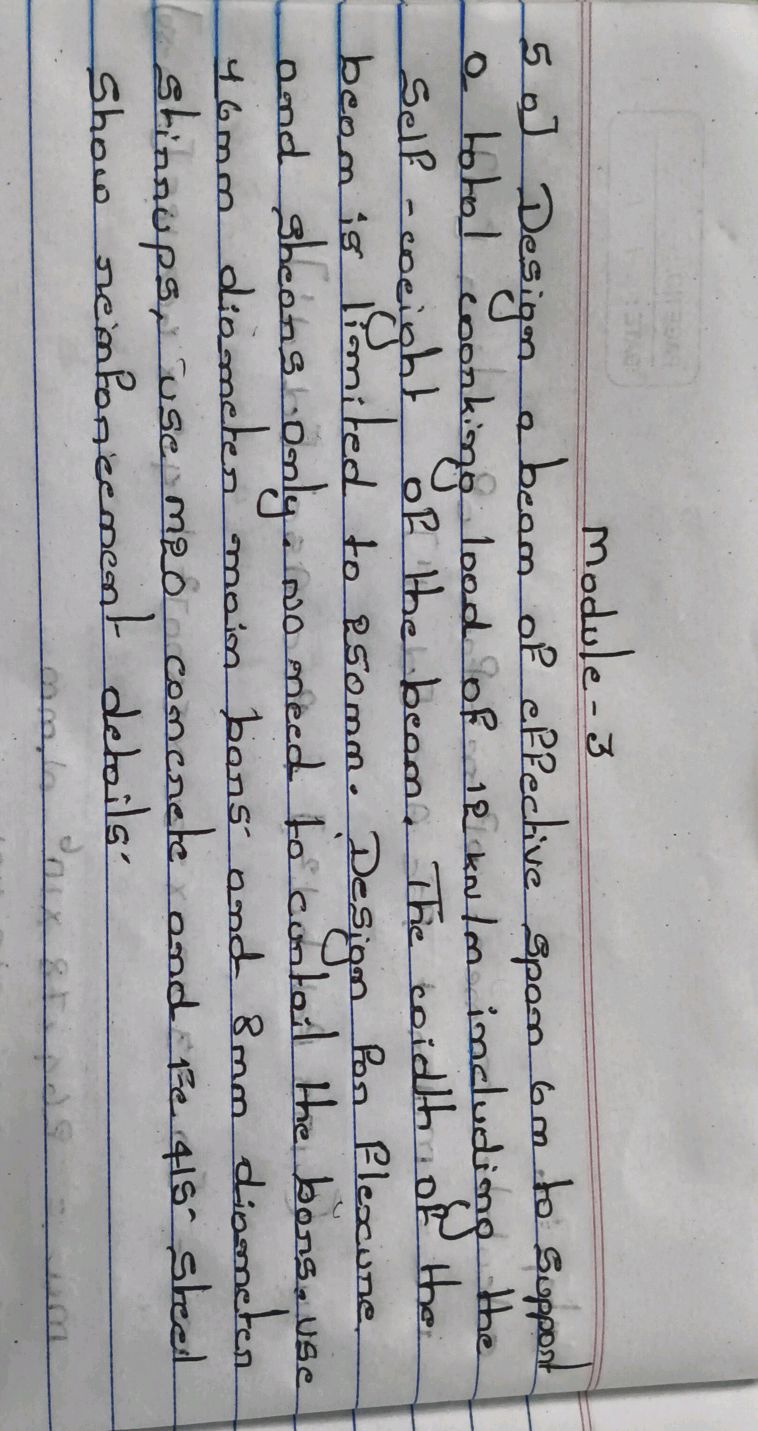 Module-3
5 a] Design a beam of effective span 6m to support
a total working load of 12 kN/m including the
self-weight of the beam. The width of the
beam is limited to 250mm. Design for flexure
and shears only. No need to contail the bars. use
46mm diameter main bars and 8mm diameter
stirrups, use M20 concrete and Fe 415 steel
show reinforcement details.